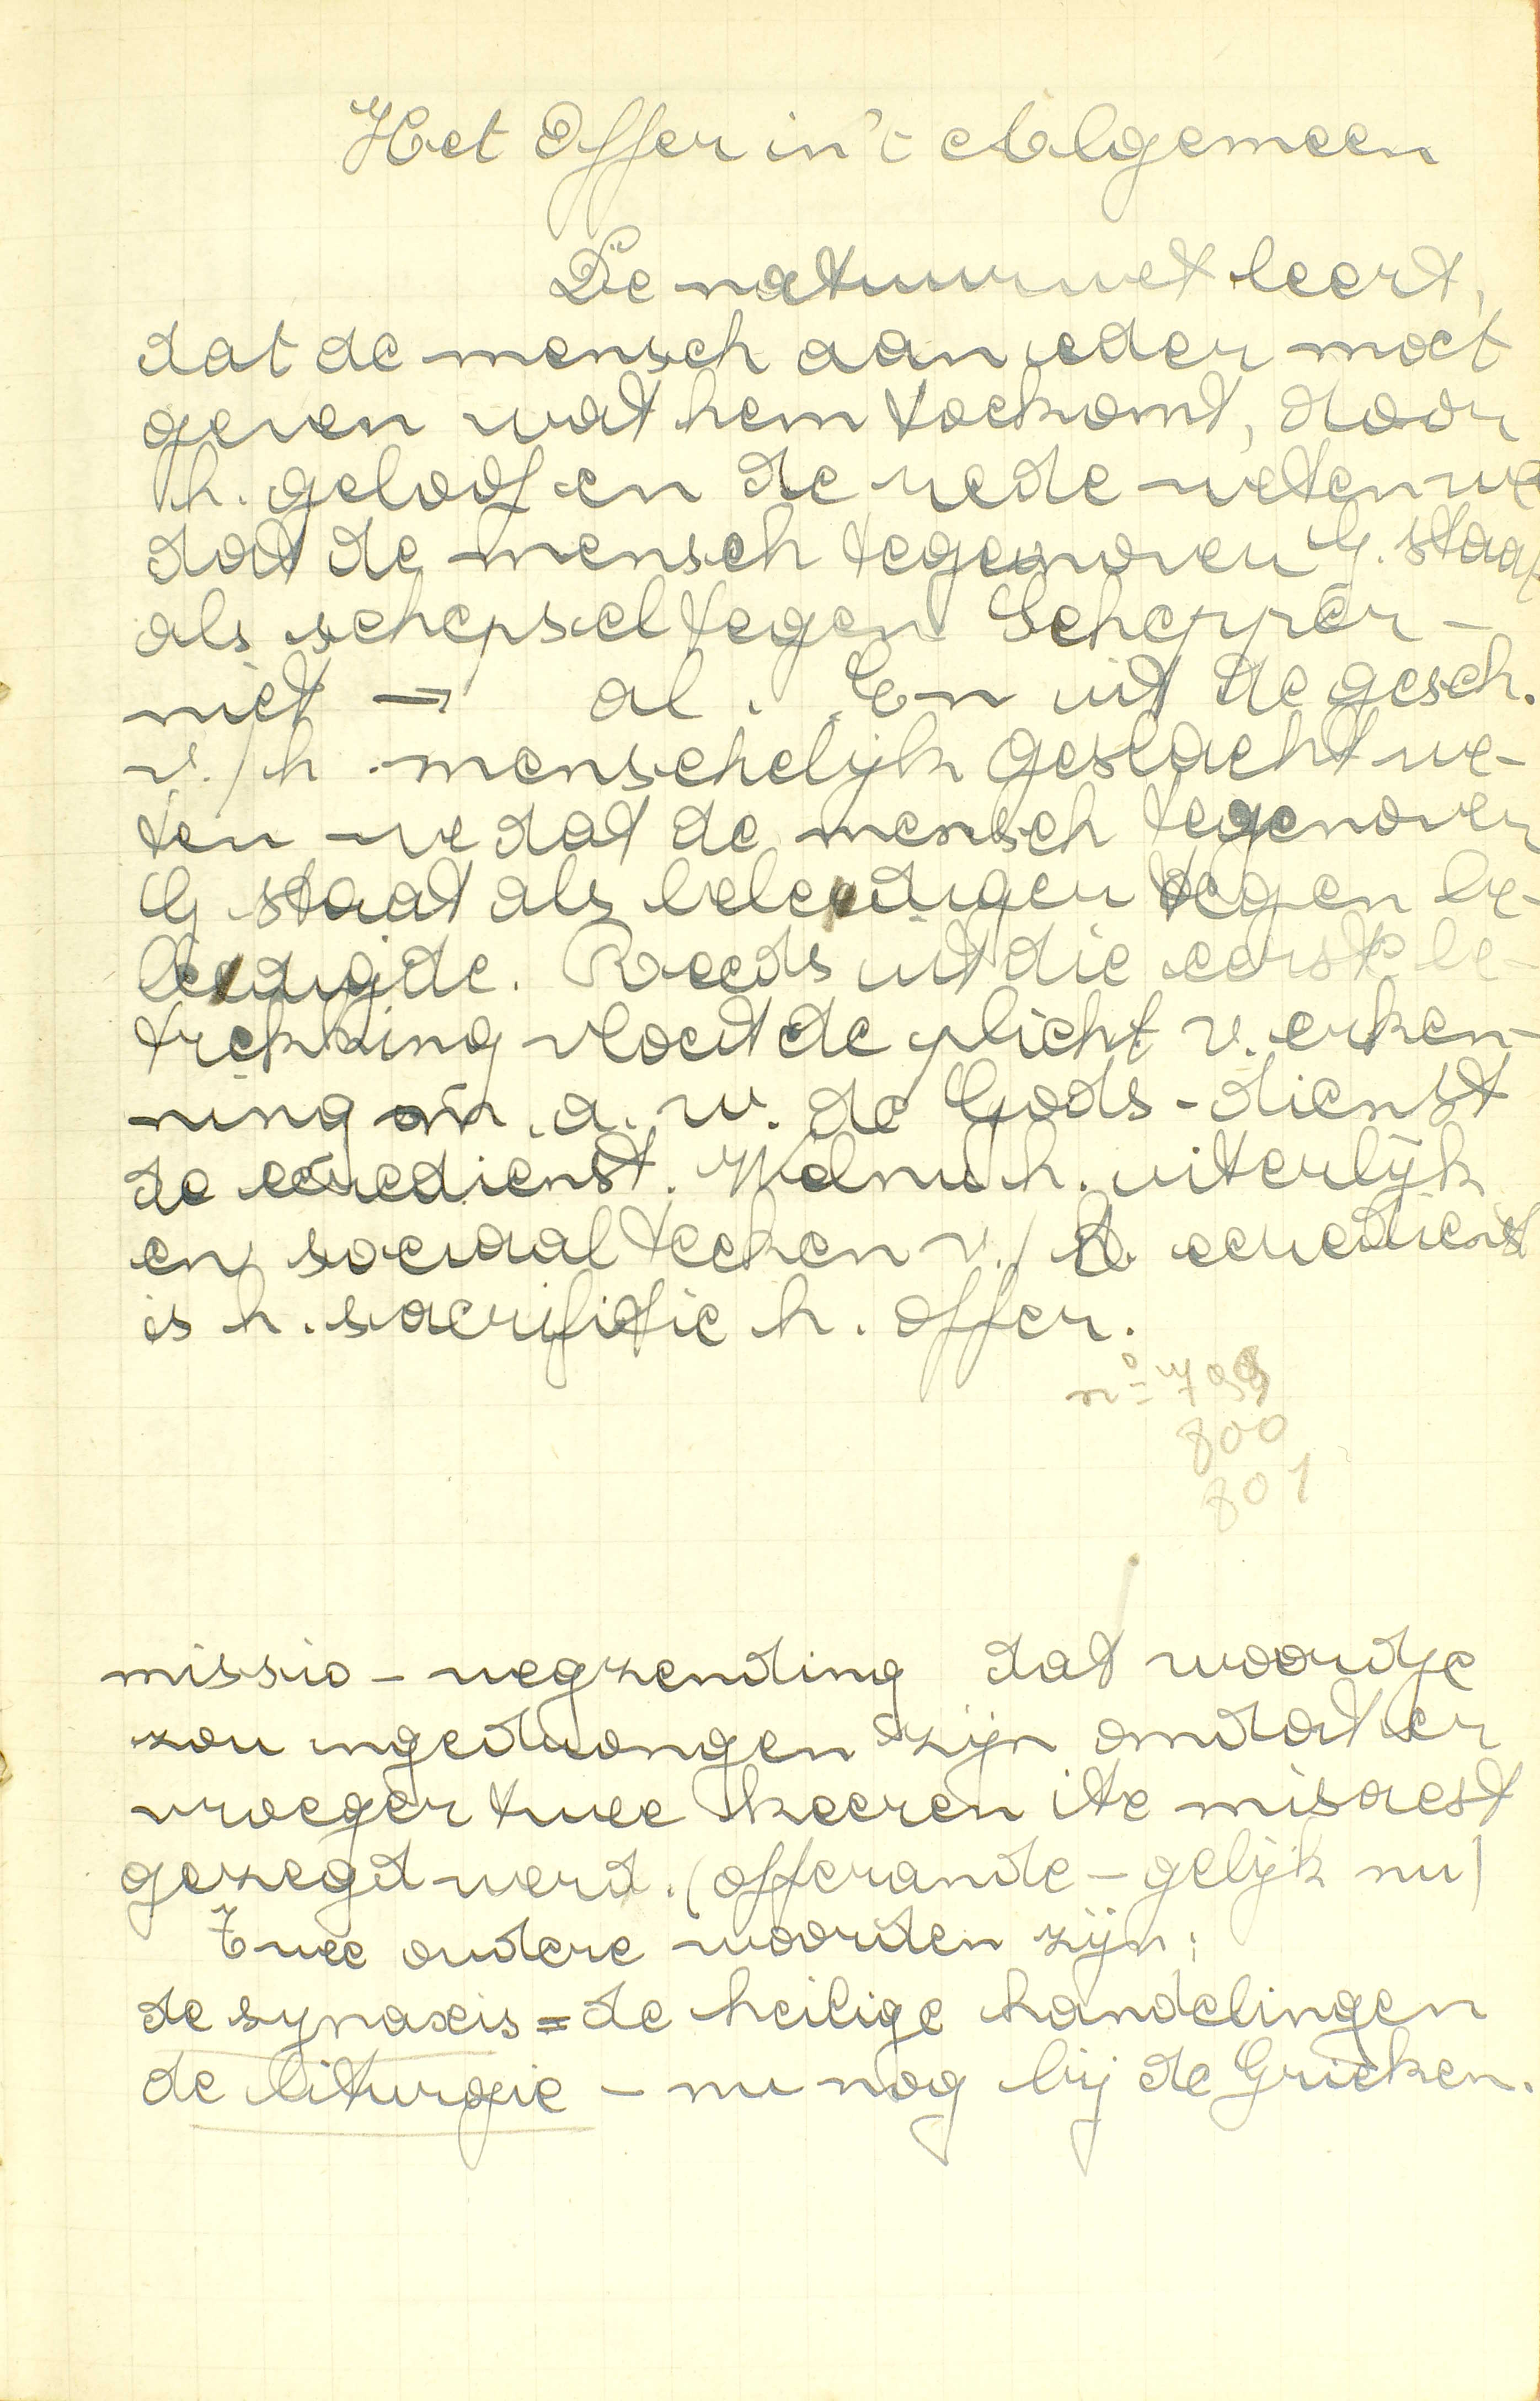 Het Offer in 't Algemeen
De natuurwet leert,
dat de mensch aan ieder moet
geven wat hem toekomt, door
h. geloof en de rede weten we
dat de mensch tegenover G. staat
als schepsel tegen Schepper –
niet → al. En uit de gesch.
v./h menschelijk geslacht we-
ten we dat de mensch tegenover
G staat als beleediger tegen be-
leedigde. Reeds uit die eerste be-
trekking vloeit de plicht v. erken-
ning m. a. w. de Gods-dienst
de eeredienst. Welnu h. uiterlijk
en sociaal teeken v./ d. eeredienst
is h. sacrifitie h. offer.
n° 799
800
801
missio – wegzending dat woordje
zou ingedrongen zijn omdat er
vroeger twee keeren ite misa est
gezegd werd. (offerande – gelijk nu)
Twee oudere woorden zijn:
de synaxis = de heilige handelingen
de liturgie – nu nog bij de Grieken.